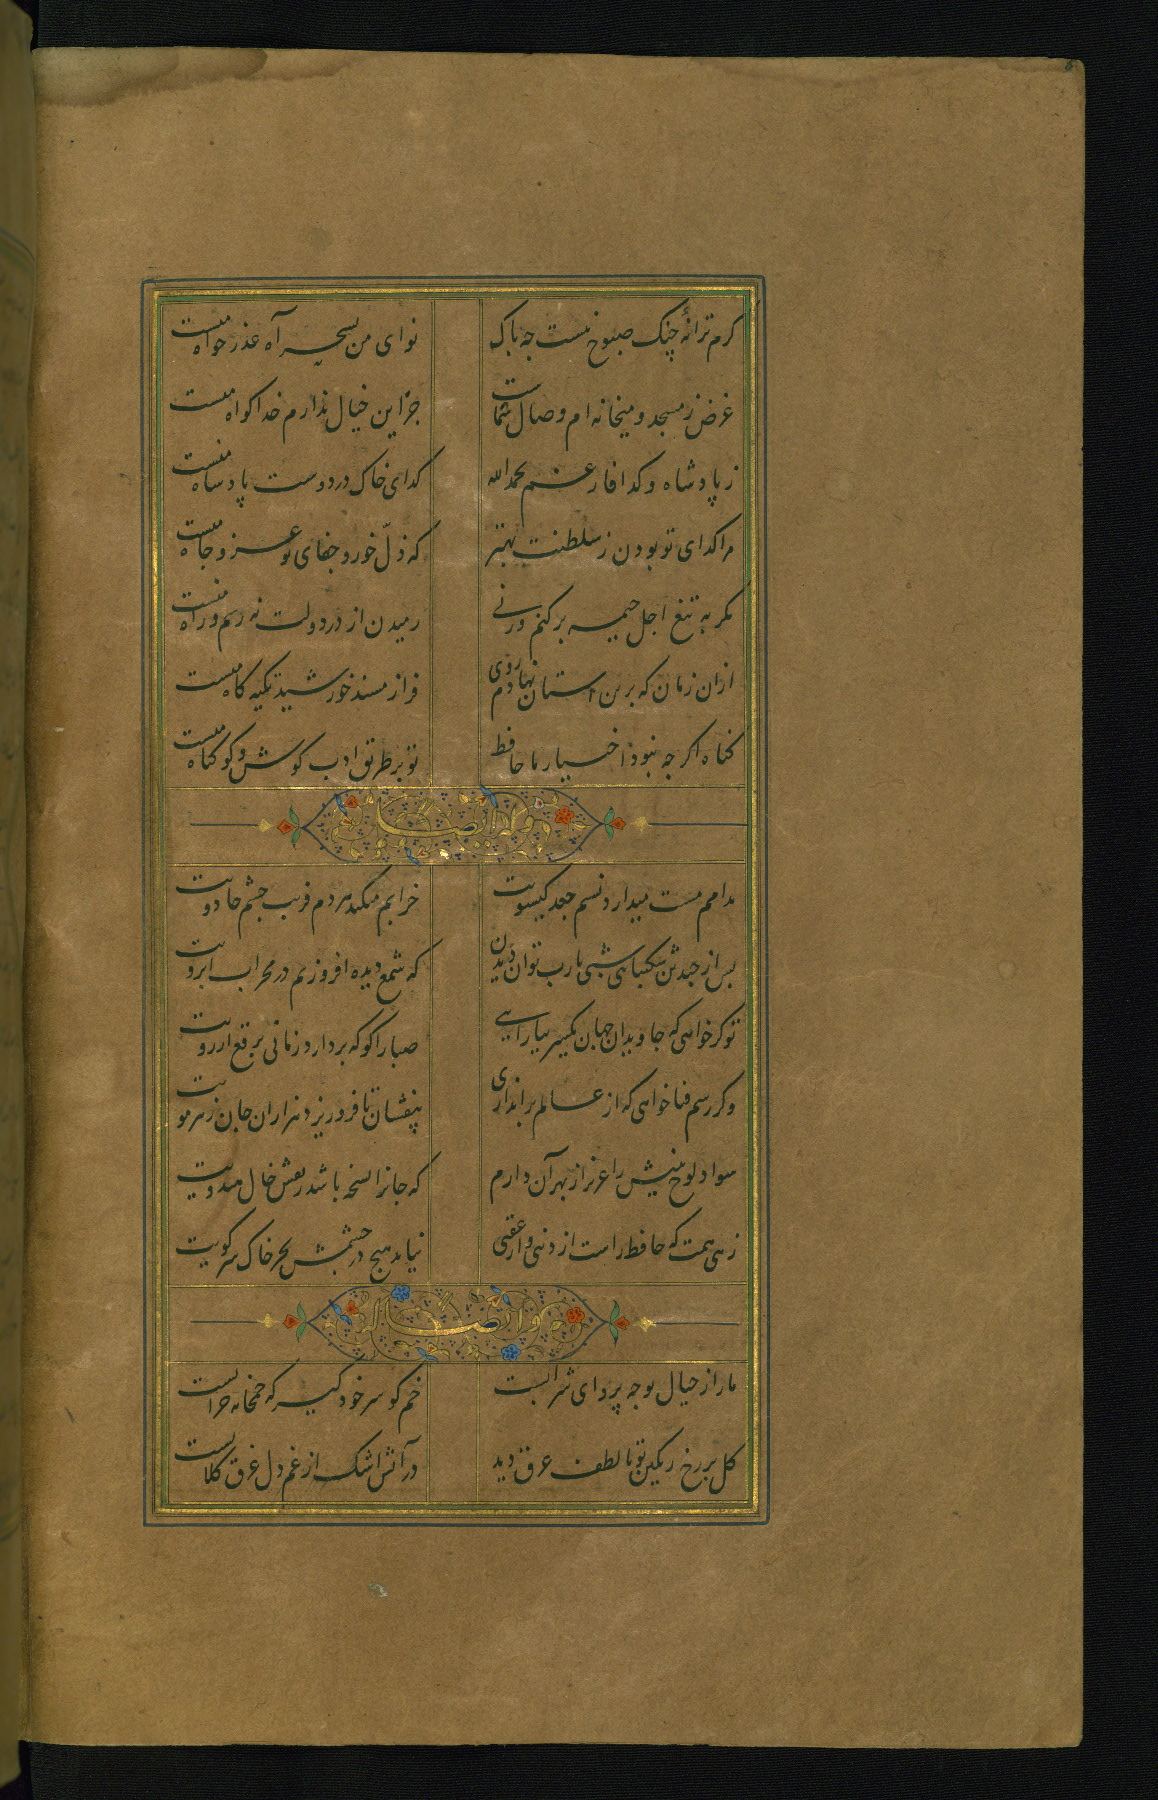 کرم ترانهٔ چنک صبوح نیست چه باک
نوای من بسحر آه عذر خواه منست
غرض ز مسجد و میخانه ام وصال شماست
جز این خیال ندارم خدا کواه منست
ز پادشاه و کدا فارغم بحمدالله
کدای خاک در دوست پادشاه منست
مرا کدای تو بودن ز سلطنت بهتر
که ذلّ خور و جفای تو عز و جاه منست
مکر به تیغ اجل خیمه برکنم ورنی
رمیدن از در دولت نه رسم و راه منست
ازان زمان که برین آستان نهادم روی
فراز مسند خورشید تکیه کاه منست
کناه اکر چه نبود اختیار ما حافظ
تو بر طریق ادب کوش و کو کناه منست
وله ایضا
مدامم مست میدارد نسیم جعد کیسویت
خرابم میکند هر دم فریب چشم جادویت
پس از چندین شکیبائی شبی یارب توان دیدن
که شمع دیده افروزیم در محراب ابرویت
تو کر خواهی که جاویدان جهان یکسر بیارایی
صبا را کو که بردارد زمانی برقع از رویت
وکر رسم فنا خواهی که از عالم براندازی
بیفشان تا فرو ریزد هزاران جان ز هر مویت
سواد لوح بینش را عزیز از بهر آن دارم
که جانرا نسخه باشد ز نقش خال هندویت
زهی همت که حافظ راست از دنیی و از عقبی
نیاید هیچ در چشمش بجز خاک سر کویت
وایضا له
ما را ز خیال تو چه پروای شرابست
خم کو سر خود کیر که خمخانه خرابست
کل بر رخ رنکین تو تا لطف عرق دید
در آتش اشک از غم دل غرق کلابست